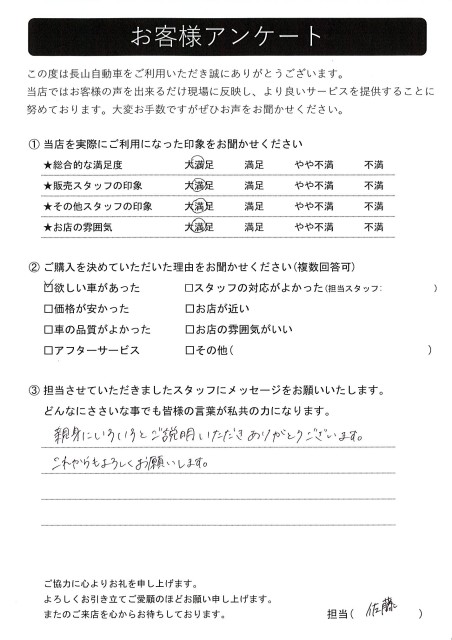 お客様アンケート
この度は長山自動車をご利用いただき誠にありがとうございます。
当店ではお客様の声を出来るだけ現場に反映し、より良いサービスを提供することに
努めております。大変お手数ですがぜひお声をお聞かせください。
① 当店を実際にご利用になった印象をお聞かせください
★総合的な満足度 大満足 満足 やや不満 不満
★販売スタッフの印象 大満足 満足 やや不満 不満
★その他スタッフの印象 大満足 満足 やや不満 不満
★お店の雰囲気 大満足 満足 やや不満 不満
② ご購入を決めていただいた理由をお聞かせください(複数回答可)
☑欲しい車があった □スタッフの対応がよかった(担当スタッフ: )
□価格が安かった □お店が近い
□車の品質がよかった □お店の雰囲気がいい
□アフターサービス □その他( )
③ 担当させていただきましたスタッフにメッセージをお願いいたします。
どんなにささいな事でも皆様の言葉が私共の力になります。
親身にいろいろとご説明いただきありがとうございます。
これからもよろしくお願いします。
ご協力に心よりお礼を申し上げます。
よろしくお引き立てご愛顧のほどお願い申し上げます。
またのご来店を心からお待ちしております。
担当( 佐藤 )